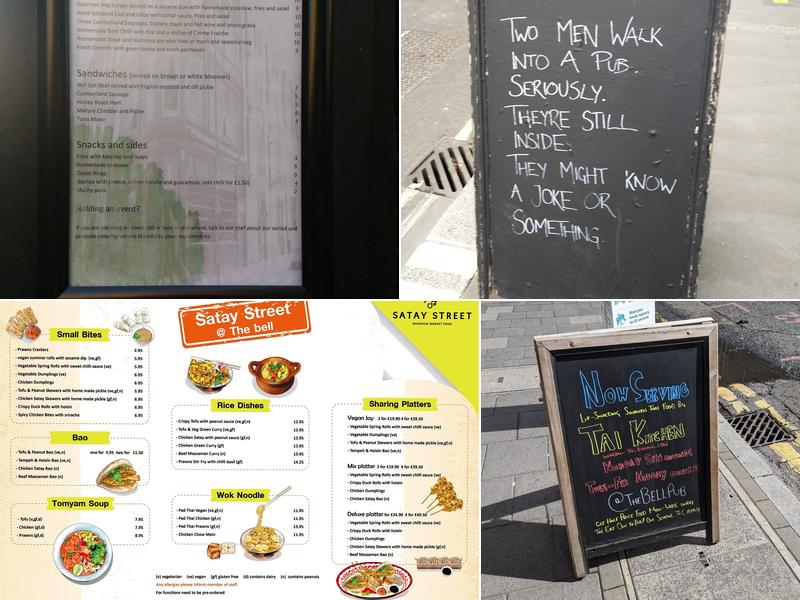 Gourmet Dog burger served on a sesame bun with homemade coleslaw, fries and salad 9
Hand battered Cod and chips with tartar sauce, fries and salad 10
Three Cumberland Sausages, buttery mash and red wine and onion gravy 10
Homemade Beef Chilli with rice and a dollop of Creme Fraiche 10
Homemade Steak and Guinness pie with fries or mash and seasonal veg 10
Fresh Gnocchi with green pesto and fresh parmesan 9
Sandwiches (served on brown or white bloomer)
Hot Salt Beef served with English mustard and dill pickle 7
Cumberland Sausage 5
Honey Roast Ham 5
Mature Cheddar and Pickle 4
Tuna Mayo 4
Snacks and sides
Fries with ketchup and mayo 3
Homemade coleslaw 3
Onion Rings 3
Nachos with cheese, creme fraiche and guacamole (add chilli for £1.50) 4
Mushy peas 2
Holding an event?
If you are planning an event either here or elsewhere, talk to our chef about our varied and
bespoke catering service tailored to your requirements.
TWO MEN WALK
INTO A PUB.
SERIOUSLY.
THEYRE STILL
INSIDE.
THEY MIGHT KNOW
A JOKE OR
SOMETHING.
Satay Street
@ The bell
SATAY STREET
BANGKOK MARKET FOOD
Small Bites
- Prawns Creckers 2.95
- vegan summer rolls with sesame dip (ve,gf) 5.95
- Vegetable Spring Rolls with sweet chilli sauce (ve) 5.95
- Vegetable Dumplings (ve) 6.95
- Chicken Dumplings 6.95
- Tofu & Peanut Skewers with home made pickle (ve,gf,n) 5.95
- Chicken Satay Skewers with home made pickle (gf,n) 6.95
- Crispy Duck Rolls with hoisin 6.95
- Spicy Chicken Bites with sriracha 6.95
Bao
- Tofu & Peanut Bao (ve,n) one for 5.95 two for 11.50
- Tempeh & Hoisin Bao (ve,n)
- Chicken Satay Bao (n)
- Beef Massaman Bao (n)
Tomyam Soup
- Tofu (v,gf,d) 7.95
- Chicken (gf,d) 7.95
- Prawns (gf,d) 8.95
Rice Dishes
- Crispy Tofu with peanut sauce (ve,gf,n) 12.95
- Tofu & Veg Green Curry (ve,gf) 12.95
- Chicken Satay with peanut sauce (gf,n) 12.95
- Chicken Green Curry (gf) 12.95
- Beef Massaman Curry (n) 13.95
- Prawns Stir Fry with chilli basil (gf) 14.25
Wok Noodle
- Pad Thai Vegan (ve,gf,n) 11.95
- Pad Thai Chicken (gf,n) 11.95
- Pad Thai Prawns (gf,n) 13.95
- Chicken Chow Mein 11.95
Sharing Platters
Vegan Joy 2 for £19.90 4 for £39.50
- Vegetable Spring Rolls with sweet chilli sauce (ve)
- Vegetable Dumplings (ve)
- Tofu & Peanut Skewers with home made pickle (ve,gf,n)
- Tempeh & Hoisin Bao (ve,n)
Mix platter 2 for £19.90 4 for £39.50
- Vegetable Spring Rolls with sweet chilli sauce (ve)
- Crispy Duck Rolls with hoisin
- Chicken Dumplings
- Chicken Satay Bao (n)
Deluxe platter for £24.90 4 for £49.50
- Vegetable Spring Rolls with sweet chilli sauce (ve)
- Crispy Duck Rolls with hoisin
- Chicken Dumplings
- Chicken Satay Skewers with home made pickle (gf,n)
- Beef Massaman Bao (n)
(v) vegetarian (ve) vegan (gf) gluten free (d) contains dairy (n) contains peanuts
Any allergies please inform member of staff.
For functions need to be pre-ordered
Wash your hands regularly for 20 seconds
NOW SERVING
LIP-SMACKING, SENSATIONAL THAI FOOD BY
TAI KITCHEN
MONDAY
TUES-FRI NOODLY
@THEBELLPUB
GET HALF PRICE FOOD MON-WEDS UNDER
THE EAT OUT TO HELP OUT SCHEME. T+C APPLY